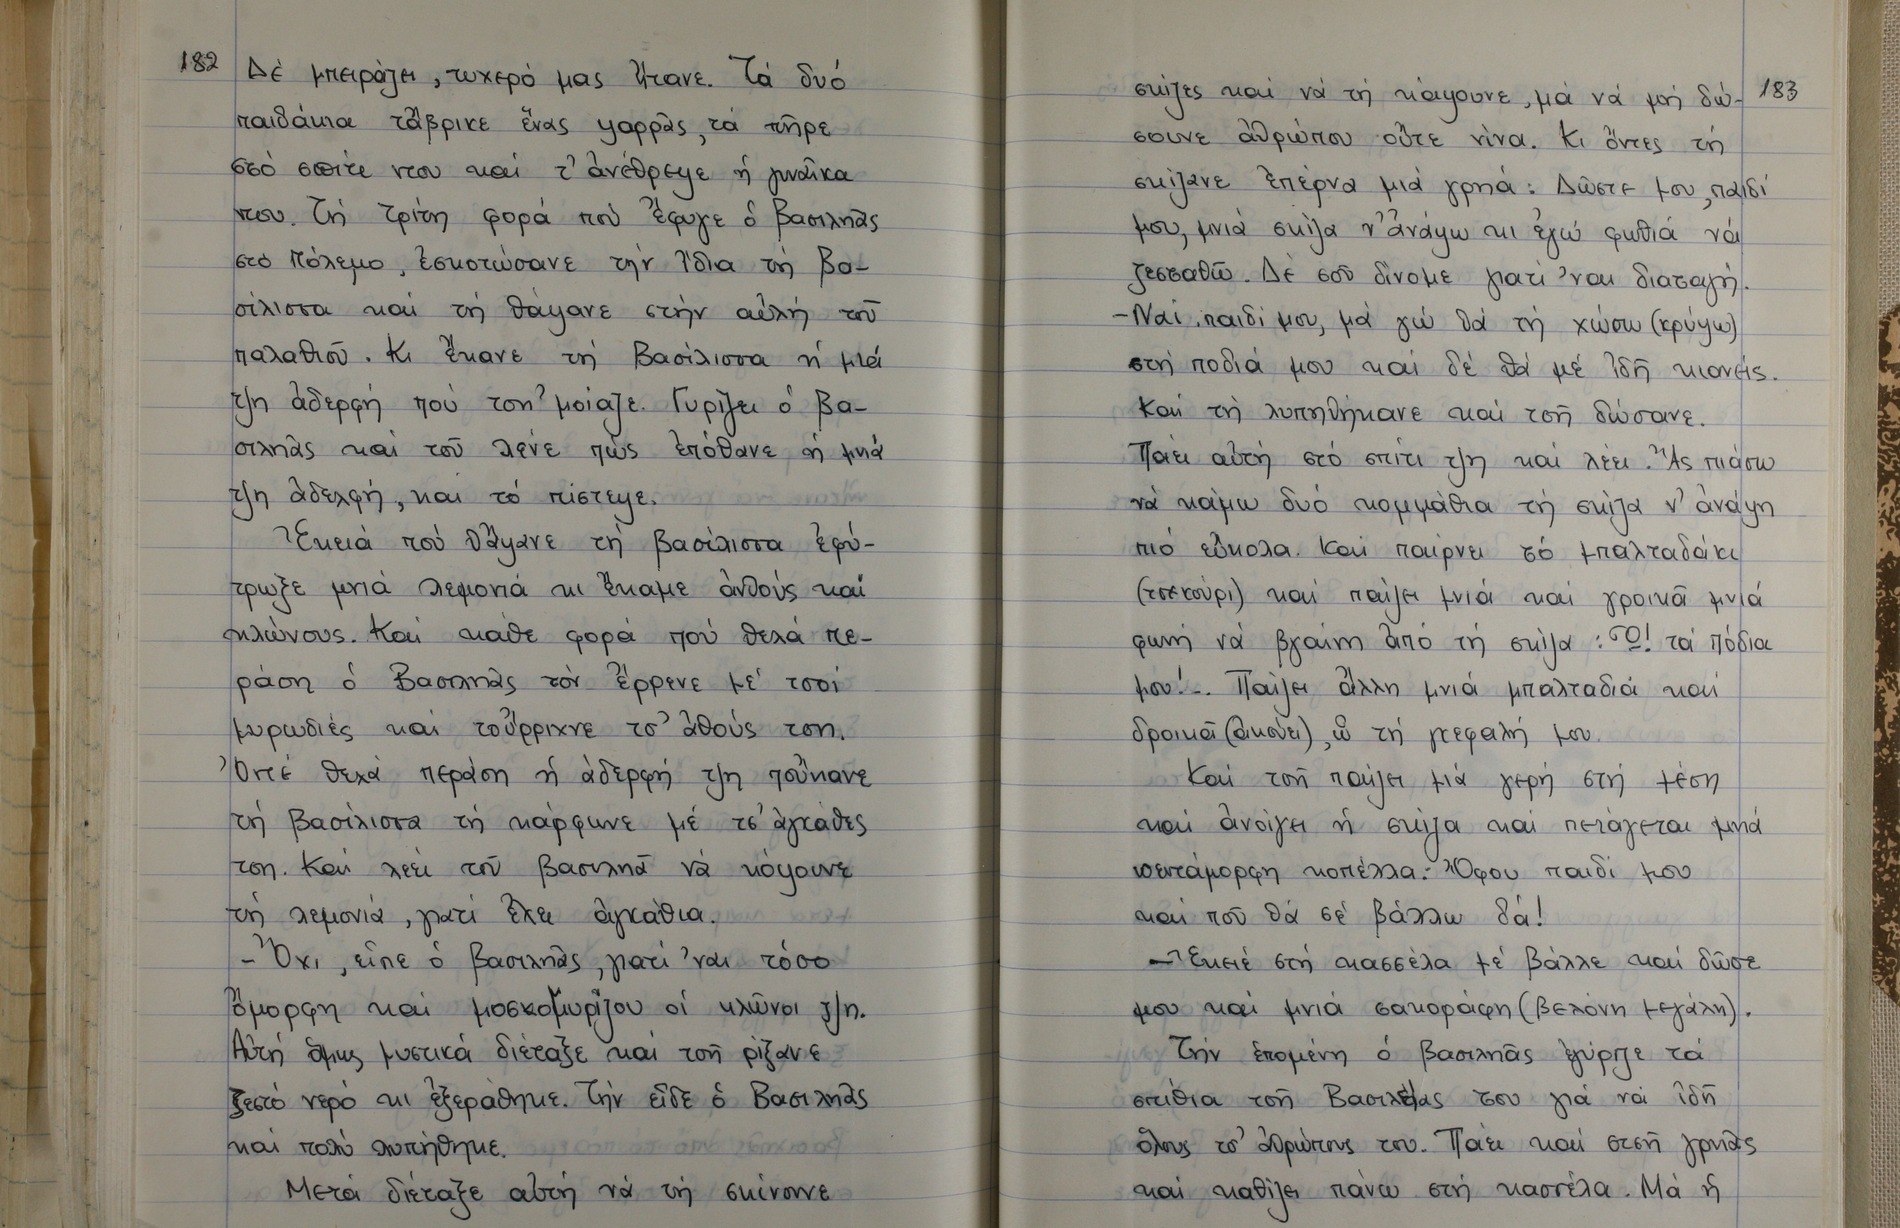 182
Δέ μπειράζει, τυχερό μας ἤτανε. Τά δυό
παιδάκια τἄβρικε ἕνας ψαρρᾶς, τά πῆρε
στό σπίτι ντου καί τ' ἀνέθρεψε ἡ γυναῖκα
ντου. Τή τρίτη φορά πού ἔφυγε ὁ βασιληᾶς
στό πόλεμο, ἐσκοτώσανε τήν ἴδια τή βα-
σίλισσα καί τή θάψανε στήν αὐλή τοῦ
παλαθιοῦ. Κι ἔκανε τή Βασίλισσα ἡ μιά
τζη ἀδερφή πού τση' μοίαζε. Γυρίζει ὁ βα-
σιληᾶς καί τοῦ λένε πώς ἐπόθανε ἡ μιά
τζη ἀδελφή, και τό πίστεψε.
Ἐκειά πού θάψανε τή βασίλισσα ἐφύ-
τρωξε μνιά λεμονιά κι ἔκαμε ἀνθούς καί
κλώνους. Καί κάθε φορά πού θελά πε-
ράση ὁ Βασιληᾶς τόν ἔρρενε μέ τσοί
μυρωδιές καί τοὔρριχνε τσ' ἀθούς τση.
Ὀντέ θελά περάση ἡ ἀδερφή τζη ποὔκανε
τή βασίλισσα τή κάρφωνε μέ τσ' ἀγκάθες
τση. Καί λέει τοῦ βασιληᾶ νά κόψουνε
τή λεμονιά, γιατί ἔχει ἀγκάθια.
- Ὄχι, εἶπε ὁ βασιληᾶς, γιατί 'ναι τόσο
ὄμορφη καί μοσκομυρίζου οἱ κλῶνοι τζη.
Αὐτή ὅμως μυστικά διέταξε καί τσῆ ρίξανε
ζεστό νερό κι ἐξεράθηκε. Τήν εἶδε ὁ Βασιληᾶς
καί πολύ λυπήθηκε.
Μετά διέταξε αὐτή νά τή σκίσουνε
183
σκίζες καί νά τή κάψουνε, μά νά μή δώ-
σουνε ἀθρώπου οὔτε νίνα. Κι ὄντες τή
σκίζανε ἐπέρνα μιά γρηά: Δῶστε μου, παιδί
μου, μνιά σκίζα ν' ἀνάψω κι ἐγώ φωθιά νά
ζεσσαθῶ. Δέ σοῦ δίνομε γιατί 'ναι διαταγή.
- Ναί, παιδί μου, μά γώ θά τή χώσω (κρύψω)
στή ποδιά μου καί δέ θά μέ ἰδῆ κιανείς.
Καί τή λυπηθήκανε καί τσῆ δώσανε.
Πάει αὐτή στό σπίτι τζη καί λέει. Ἄς πιάσω
νά κάμω δυό κομμάθια τή σκίζα ν' ἀνάψη
πιό εὔκολα. Καί παίρνει τό μπαλταδάκι
(τσεκούρι) καί παίζει μνιά καί γροικᾶ μνιά
φωνή νά βγαίνη ἀπό τή σκίζα: Ὤ! τά πόδια
μου!.. Παίζει ἄλλη μνιά μπαλταδιά καί
δροικᾶ (ἀκούει), ὦ τή γκεφαλή μου.
Καί τσῆ παίζει μιά γερή στή μέση
καί ἀνοίγει ἡ σκίζα καί πετάγεται μνιά
πεντάμορφη κοπέλλα: Ὄφου παιδί μου
καί ποῦ θά σέ βάλλω δά!
- Ἐκειέ στή κασσέλα μέ βάλλε καί δῶσε
μου καί μνιά σακοράφη (βελόνη μεγάλη).
Τήν ἑπομένη ὁ βασιληᾶς ἐγύριζε τά
σπίθια τσῆ Βασιλείας του γιά νά ἰδῆ
ὅλους τσ' ἀθρώπους του. Πάει καί στσῆ γρηᾶς
καί καθίζει πάνω στή κασσέλα. Μά ἡ